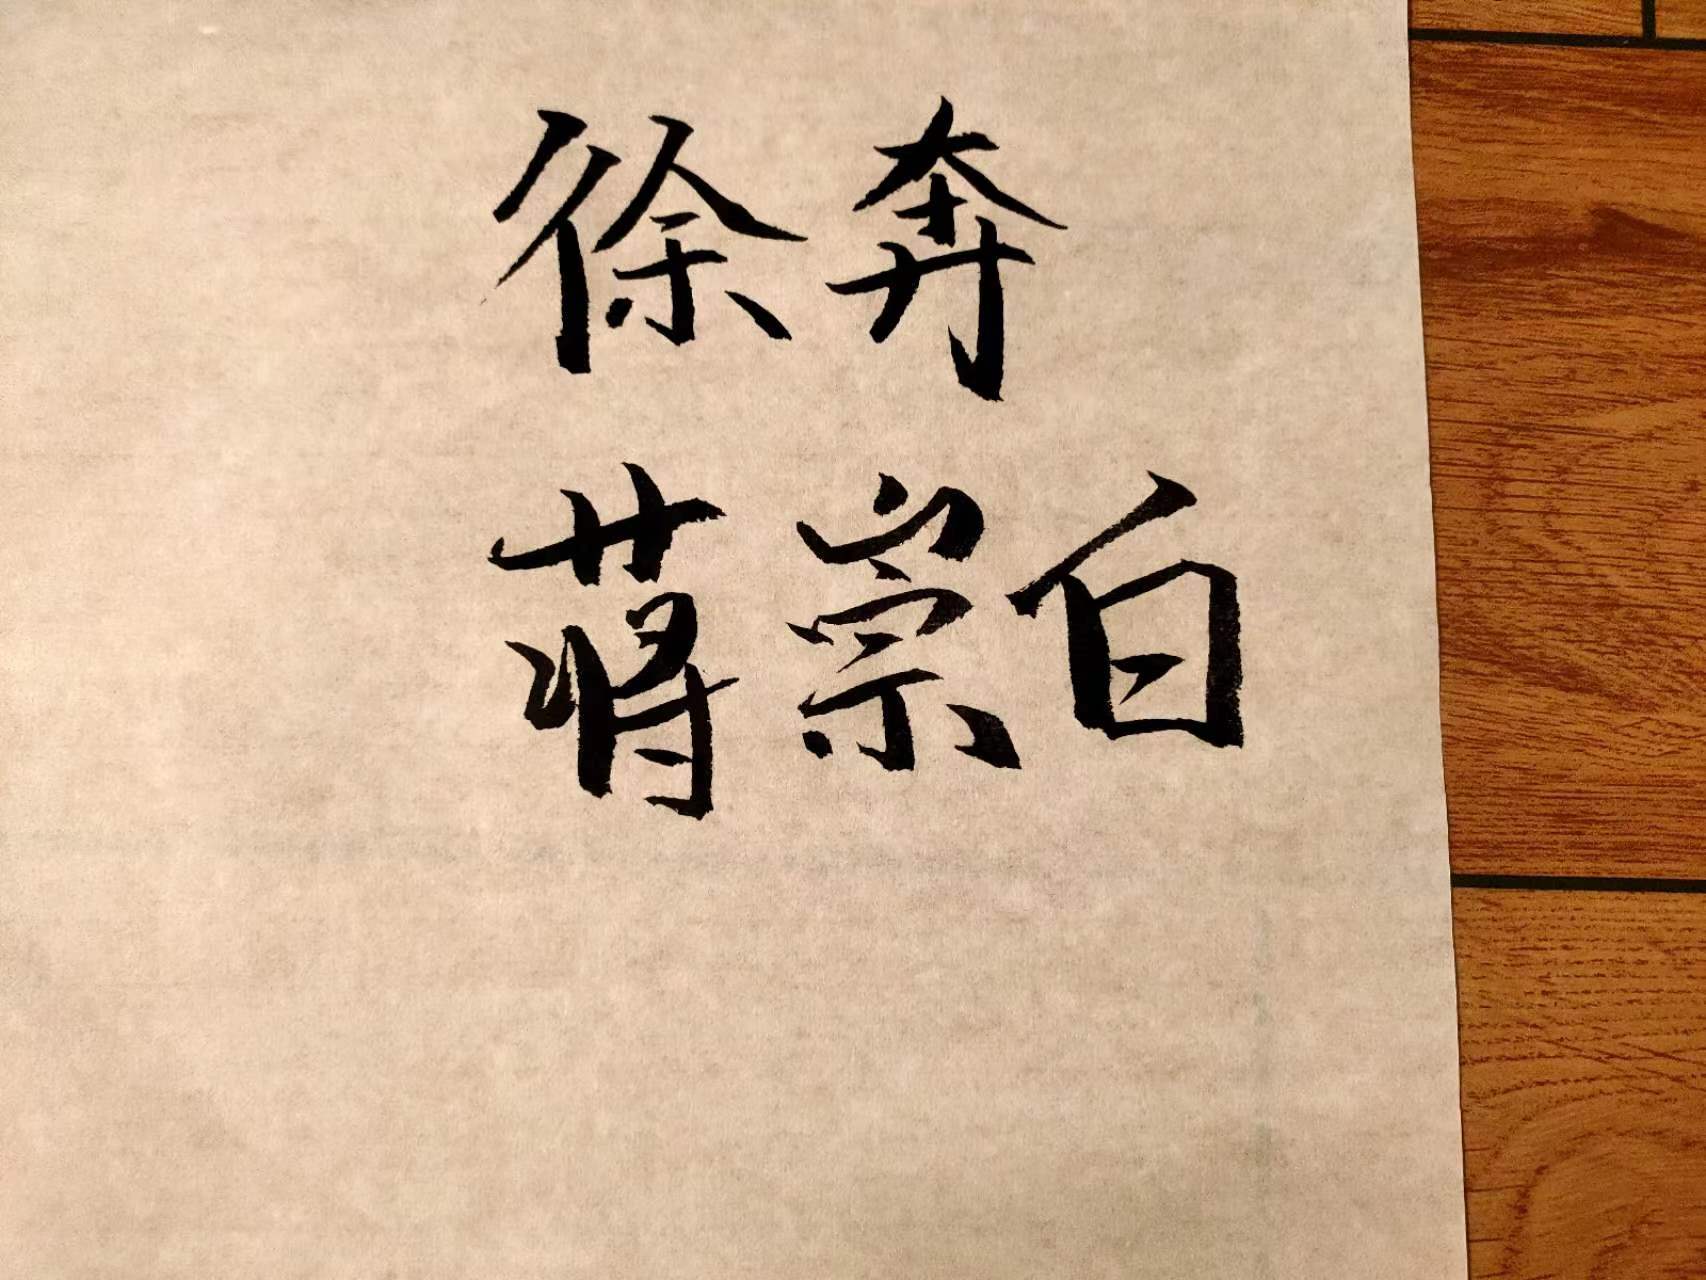 徐奔
蒋崇白